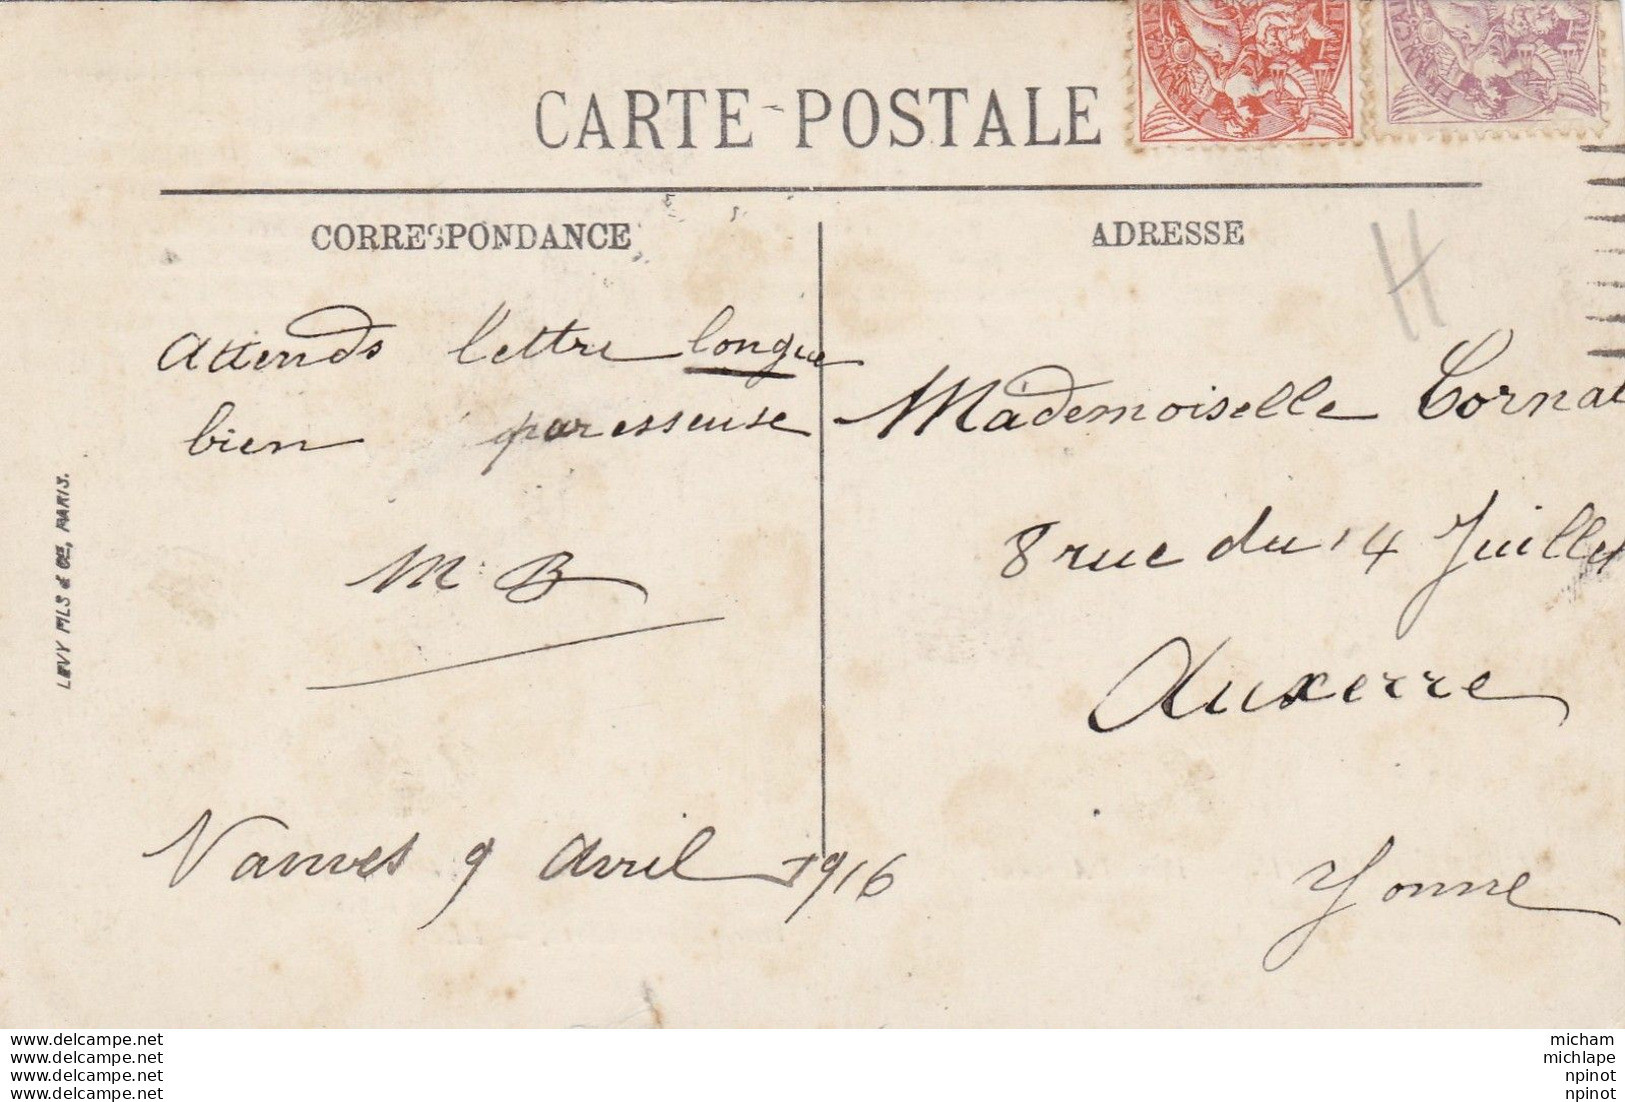 CARTE-POSTALE
CORRESPONDANCE
ADRESSE
H
Attends lettre longue
bien paresseuse
M. B
Vanves 9 avril 1916
Mademoiselle Cornat
8 rue du 14 Juillet
Auxerre
Yonne
LEVY FILS & CIE, PARIS.
www.delcampe.net
www.delcampe.net
www.delcampe.net
www.delcampe.net
micham
michlape
npinot
npinot